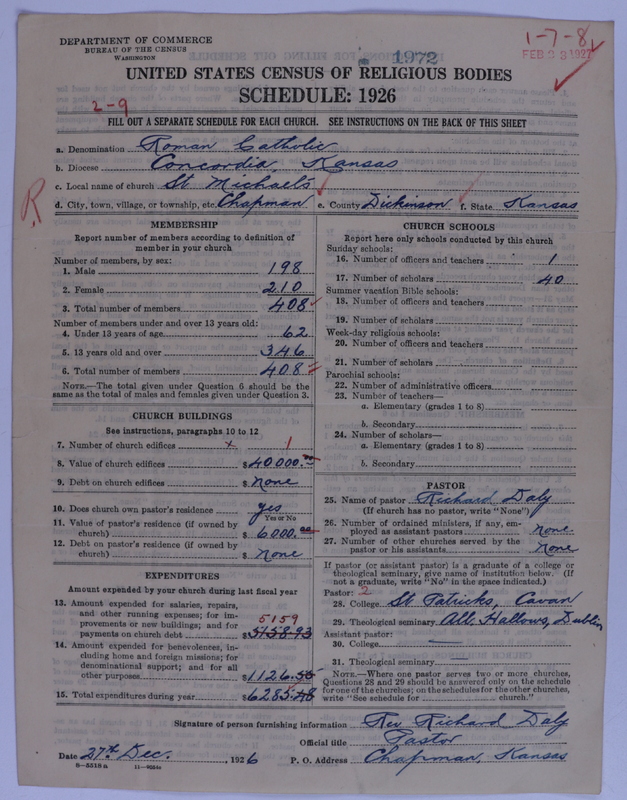 DEPARTMENT OF COMMERCE
BUREAU OF THE CENSUS
WASHINGTON
1972
1-7-8
FEB 23 1927
UNITED STATES CENSUS OF RELIGIOUS BODIES
SCHEDULE: 1926
2-9
FILL OUT A SEPARATE SCHEDULE FOR EACH CHURCH. SEE INSTRUCTIONS ON THE BACK OF THIS SHEET
a. Denomination Roman Catholic
b. Diocese Concordia, Kansas
c. Local name of church St Michael's
R
d. City, town, village, or township, etc. Chapman e. County Dickinson f. State Kansas
MEMBERSHIP
Report number of members according to definition of
member in your church
Number of members, by sex:
1. Male 198
2. Female 210
3. Total number of members 408
Number of members under and over 13 years old:
4. Under 13 years of age 62
5. 13 years old and over 346
6. Total number of members 408
NOTE.—The total given under Question 6 should be
same as the total of males and females given under Question 3.
CHURCH BUILDINGS
See instructions, paragraphs 10 to 12
7. Number of church edifices x 1
8. Value of church edifices $40000.00
9. Debt on church edifices $ None
10. Does church own pastor's residence yes
Yes or No
11. Value of pastor's residence (if owned by
church) $6000.00
12. Debt on pastor's residence (if owned by
church) $ None
EXPENDITURES
Amount expended by your church during last fiscal year
13. Amount expended for salaries, repairs,
and other running expenses; for im-
provements or new buildings; and for
payments on church debt $5158.93
5159
14. Amount expended for benevolences, in-
cluding home and foreign missions; for
denominational support; and for all
other purposes $1126.55
15. Total expenditures during year $6285.48
CHURCH SCHOOLS
Report here only schools conducted by this church
Sunday schools:
16. Number of officers and teachers 1
17. Number of scholars 40
Summer vacation Bible schools:
18. Number of officers and teachers
19. Number of scholars
Week-day religious schools:
20. Number of officers and teachers
21. Number of scholars
Parochial schools:
22. Number of administrative officers
23. Number of teachers—
a. Elementary (grades 1 to 8)
b. Secondary
24. Number of scholars—
a. Elementary (grades 1 to 8)
b. Secondary
PASTOR
25. Name of pastor Richard Daly
(If church has no pastor, write "None")
26. Number of ordained ministers, if any, em-
ployed as assistant pastors None
27. Number of other churches served by the
pastor or his assistants None
If pastor (or assistant pastor) is a graduate of a college or
theological seminary, give name of institution below. (If
not a graduate, write "No" in the space indicated.)
Pastor: 2
28. College St Patricks, Cavan
29. Theological seminary All Hallows, Dublin
Assistant pastor:
30. College —
31. Theological seminary —
NOTE.—Where one pastor serves two or more churches,
Questions 28 and 29 should be answered only on the schedule
for one of the churches; on the schedules for the other churches,
write "See schedule for church."
Signature of person furnishing information Rev Richard Daly
Official title Pastor
Date 27th Dec. , 1926 P. O. Address Chapman, Kansas
8—5518a 11—9504c